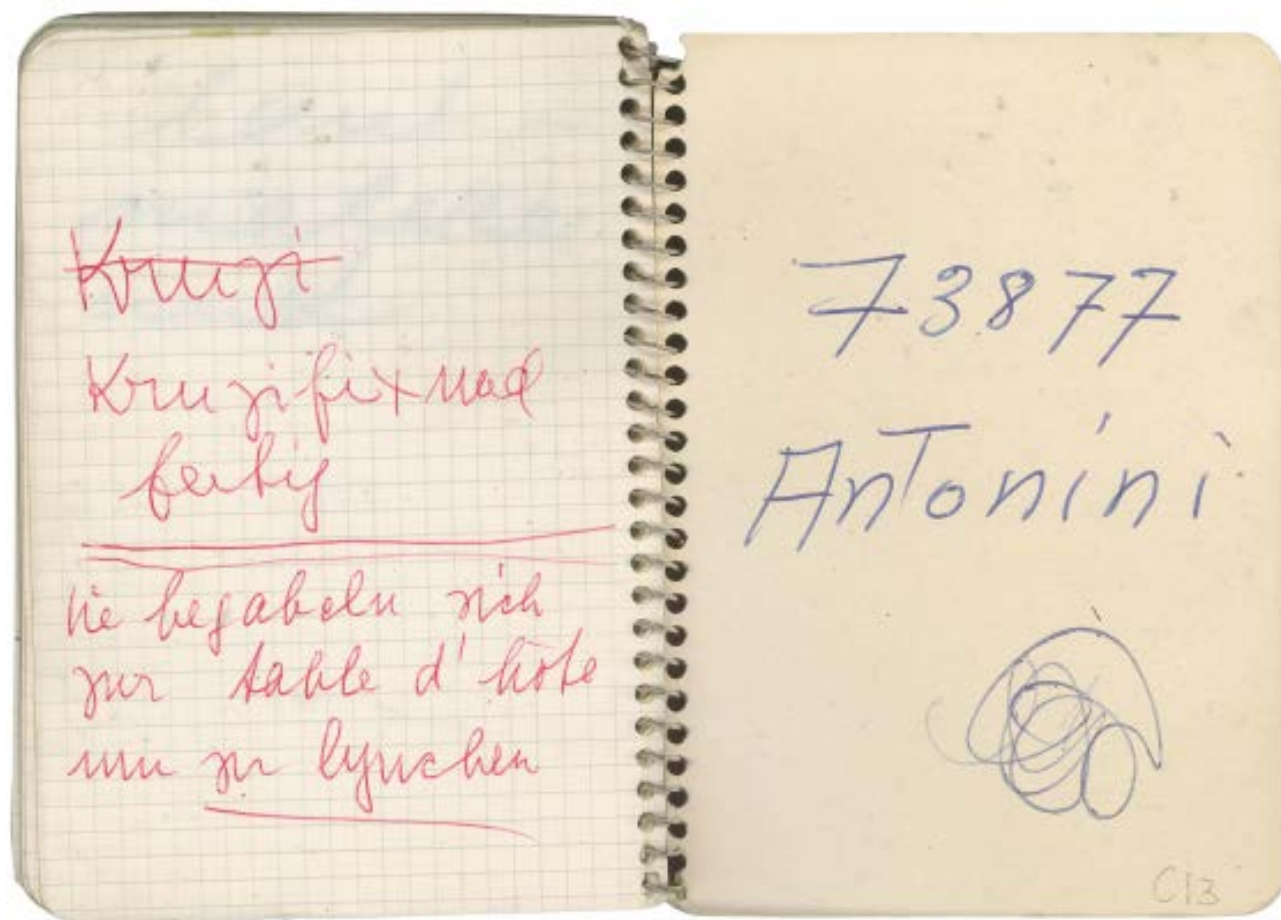 Kruzi
Kruzifix und
fertig
sie begabeln sich
zur table d'hôte
um zu lynchen
73877
Antonini
C13